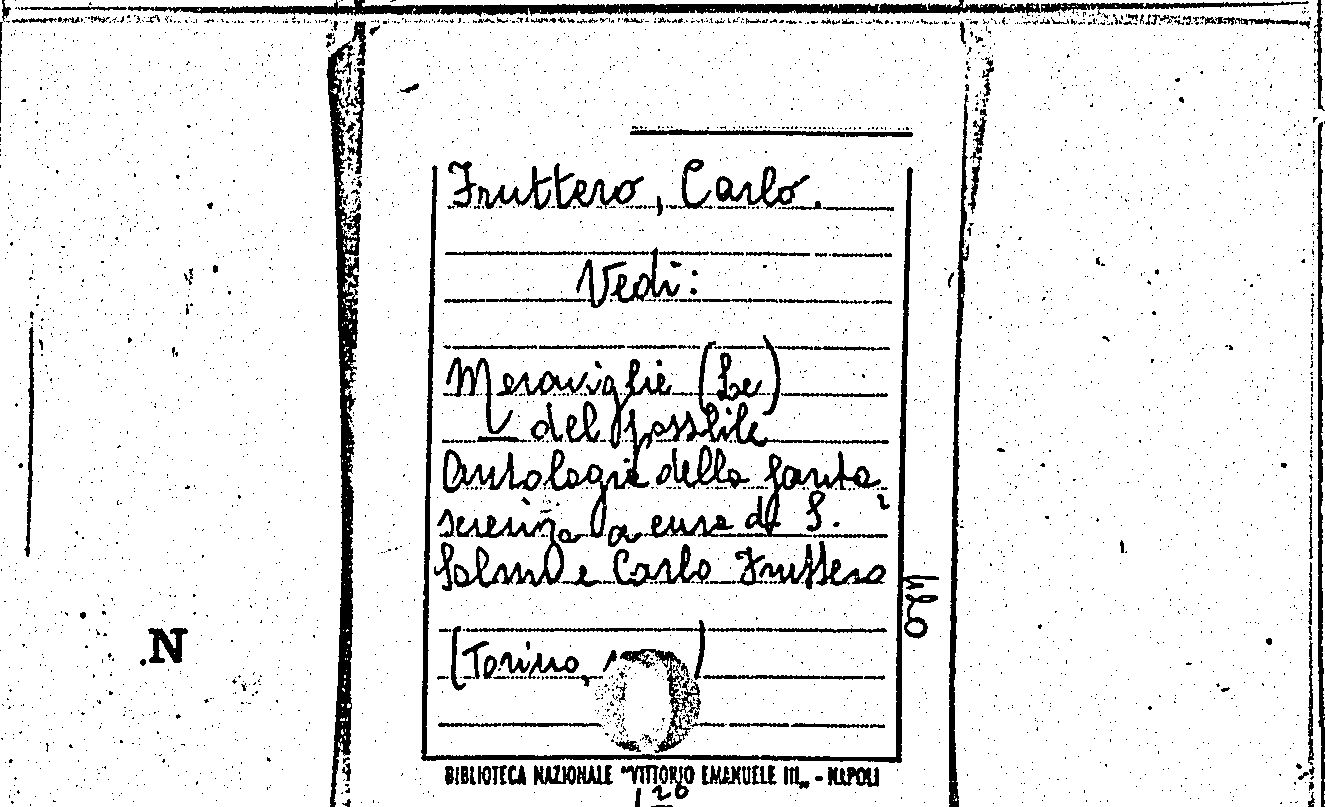 Fruttero, Carlo.
Vedi:
Meraviglie (Le)
del possibile
Antologia della fanta
scienza a cura di S.
Solmi e Carlo Fruttero
(Torino, )
.N
BIBLIOTECA NAZIONALE "VITTORIO EMANUELE III„ - NAPOLI